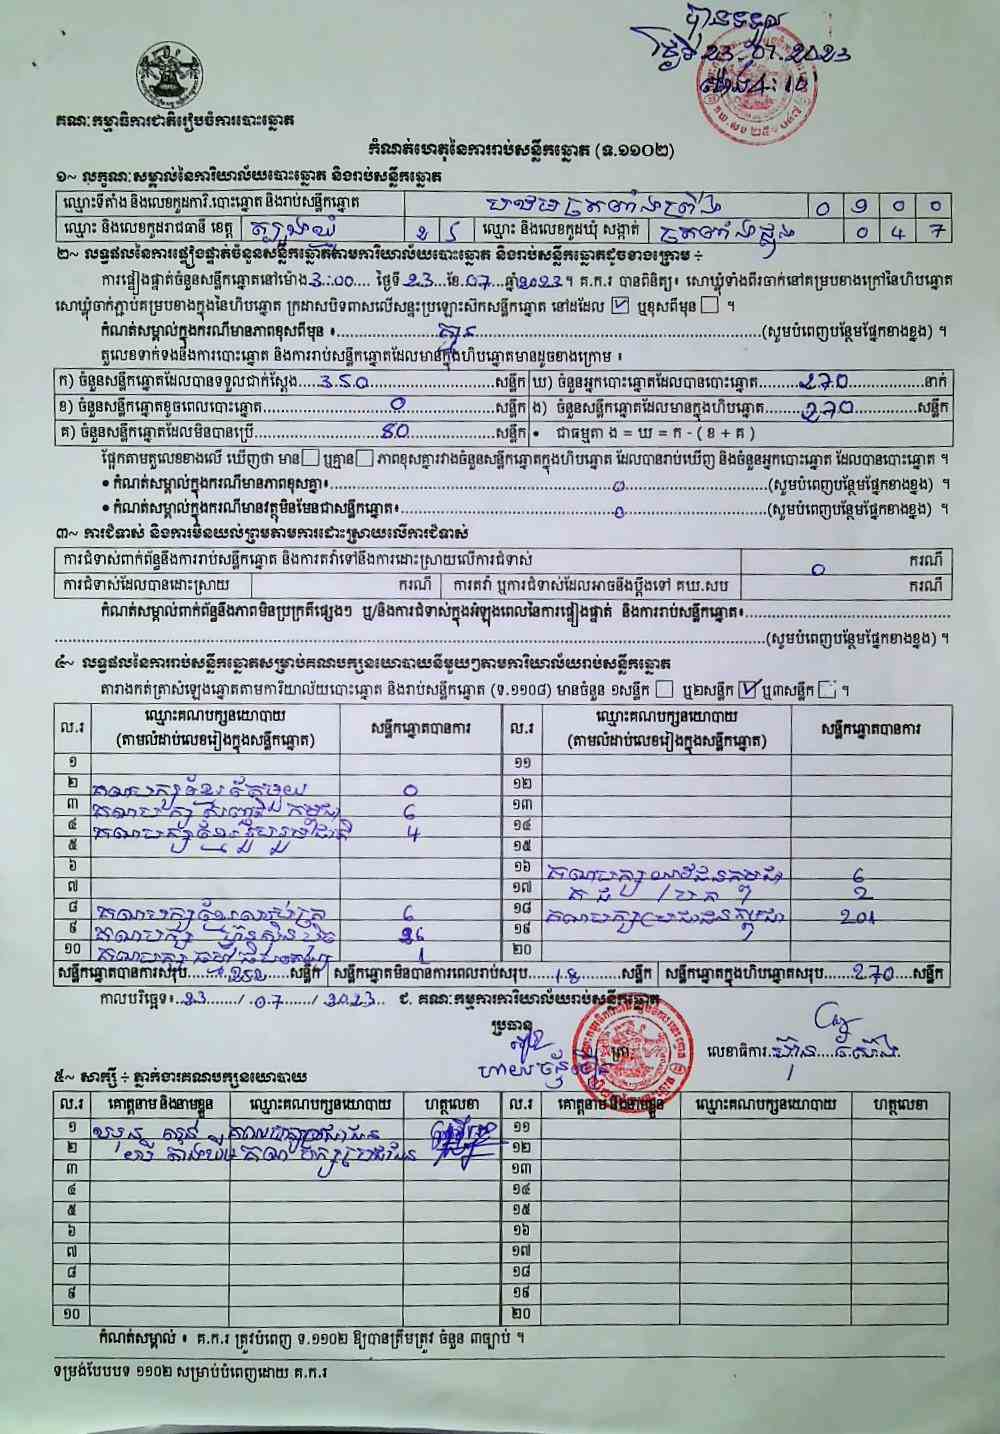 បានទទួល
ថ្ងៃទី 23.07.2023
ម៉ោង 4:10
គណៈកម្មាធិការជាតិរៀបចំការបោះឆ្នោត
កំណត់ហេតុនៃការរាប់សន្លឹកឆ្នោត (ទ.១១០២)
១~ លក្ខណៈសម្គាល់នៃការិយាល័យបោះឆ្នោត និងរាប់សន្លឹកឆ្នោត
ឈ្មោះទីតាំង និងលេខកូដការិ.បោះឆ្នោត និងរាប់សន្លឹកឆ្នោត 0 9 0 0
ឈ្មោះ និងលេខកូដរាជធានី ខេត្ត ត្បូងឃ្មុំ 2 5 ឈ្មោះ និងលេខកូដឃុំ សង្កាត់ 0 4 7
២~ លទ្ធផលនៃការផ្ទៀងផ្ទាត់ចំនួនសន្លឹកឆ្នោតតាមការិយាល័យបោះឆ្នោត និងរាប់សន្លឹកឆ្នោតដូចខាងក្រោម ៖
ការផ្ទៀងផ្ទាត់ចំនួនសន្លឹកឆ្នោតនៅម៉ោង 3:00 ថ្ងៃទី 23 ខែ 07 ឆ្នាំ 2023 ។ គ.ក.រ បានពិនិត្យ៖ សោឃ្លុំទាំងពីរចាក់នៅគម្របខាងក្រៅនៃហិបឆ្នោត
សោឃ្លុំចាក់ភ្ជាប់គម្របខាងក្នុងនៃហិបឆ្នោត ក្រដាសបិទពាសលើសន្ទះប្រឡោះស៊កសន្លឹកឆ្នោត នៅដដែល ☑ ឬខុសពីមុន ☐ ។
កំណត់សម្គាល់ក្នុងករណីមានភាពខុសពីមុន ៖ គ្មាន (សូមបំពេញបន្ថែមផ្នែកខាងខ្នង) ។
តួលេខទាក់ទងនឹងការបោះឆ្នោត និងការរាប់សន្លឹកឆ្នោតដែលមានក្នុងហិបឆ្នោតមានដូចខាងក្រោម ៖
ក) ចំនួនសន្លឹកឆ្នោតដែលបានទទួលជាក់ស្តែង 350 សន្លឹក ឃ) ចំនួនអ្នកបោះឆ្នោតដែលបានបោះឆ្នោត 270 នាក់
ខ) ចំនួនសន្លឹកឆ្នោតខូចពេលបោះឆ្នោត 0 សន្លឹក ង) ចំនួនសន្លឹកឆ្នោតដែលមានក្នុងហិបឆ្នោត 270 សន្លឹក
គ) ចំនួនសន្លឹកឆ្នោតដែលមិនបានប្រើ 80 សន្លឹក • ជាធម្មតា ង = ឃ = ក - ( ខ + គ )
ផ្អែកតាមតួលេខខាងលើ ឃើញថា មាន ☐ ឬគ្មាន ☐ ភាពខុសគ្នារវាងចំនួនសន្លឹកឆ្នោតក្នុងហិបឆ្នោត ដែលបានរាប់ឃើញ និងចំនួនអ្នកបោះឆ្នោត ដែលបានបោះឆ្នោត ។
• កំណត់សម្គាល់ក្នុងករណីមានភាពខុសគ្នា៖ 0 (សូមបំពេញបន្ថែមផ្នែកខាងខ្នង) ។
• កំណត់សម្គាល់ក្នុងករណីមានវត្ថុមិនមែនជាសន្លឹកឆ្នោត៖ 0 (សូមបំពេញបន្ថែមផ្នែកខាងខ្នង) ។
៣~ ការជំទាស់ និងការមិនយល់ព្រមតាមការដោះស្រាយលើការជំទាស់
ការជំទាស់ពាក់ព័ន្ធនឹងការរាប់សន្លឹកឆ្នោត និងការតវ៉ាទៅនឹងការដោះស្រាយលើការជំទាស់ 0 ករណី
ការជំទាស់ដែលបានដោះស្រាយ ករណី ការតវ៉ា ឬការជំទាស់ដែលអាចនឹងប្តឹងទៅ គឃ.សប ករណី
កំណត់សម្គាល់ពាក់ព័ន្ធនឹងភាពមិនប្រក្រតីផ្សេងៗ ឬ/និងការជំទាស់ក្នុងអំឡុងពេលនៃការផ្ទៀងផ្ទាត់ និងការរាប់សន្លឹកឆ្នោត៖
(សូមបំពេញបន្ថែមផ្នែកខាងខ្នង) ។
៤~ លទ្ធផលនៃការរាប់សន្លឹកឆ្នោតសម្រាប់គណបក្សនយោបាយនីមួយៗតាមការិយាល័យរាប់សន្លឹកឆ្នោត
តារាងកត់ត្រាសំឡេងឆ្នោតតាមការិយាល័យបោះឆ្នោត និងរាប់សន្លឹកឆ្នោត (ទ.១១០៨) មានចំនួន ១សន្លឹក ☐ ឬ២សន្លឹក ☑ ឬ៣សន្លឹក ☐ ។
ល.រ ឈ្មោះគណបក្សនយោបាយ (តាមលំដាប់លេខរៀងក្នុងសន្លឹកឆ្នោត) សន្លឹកឆ្នោតបានការ ល.រ ឈ្មោះគណបក្សនយោបាយ (តាមលំដាប់លេខរៀងក្នុងសន្លឹកឆ្នោត) សន្លឹកឆ្នោតបានការ
១ ១១
២ គណបក្ស 0 ១២
៣ គណបក្ស កម្ពុជា 6 ១៣
៤ គណបក្សខ្មែររួបរួមជាតិ 4 ១៤
៥ ១៥
៦ ១៦ គណបក្សយុវជនកម្ពុជា 6
៧ ១៧ 2
៨ គណបក្សខ្មែរ 6 ១៨ គណបក្សប្រជាជនកម្ពុជា 201
៩ គណបក្ស ហ្វ៊ុនស៊ិនប៉ិច 26 ១៩
១០ គណបក្ស 1 ២០
សន្លឹកឆ្នោតបានការសរុប 252 សន្លឹក សន្លឹកឆ្នោតមិនបានការពេលរាប់សរុប 18 សន្លឹក សន្លឹកឆ្នោតក្នុងហិបឆ្នោតសរុប 270 សន្លឹក
កាលបរិច្ឆេទ៖ 23 / 07 / 2023 ជ. គណៈកម្មការការិយាល័យរាប់សន្លឹកឆ្នោត
ប្រធាន
លេខាធិការ
៥~ សាក្សី ៖ ភ្នាក់ងារគណបក្សនយោបាយ
ល.រ គោត្តនាម និងនាមខ្លួន ឈ្មោះគណបក្សនយោបាយ ហត្ថលេខា ល.រ គោត្តនាម និងនាមខ្លួន ឈ្មោះគណបក្សនយោបាយ ហត្ថលេខា
១ ១១
២ ១២
៣ ១៣
៤ ១៤
៥ ១៥
៦ ១៦
៧ ១៧
៨ ១៨
៩ ១៩
១០ ២០
កំណត់សម្គាល់ ៖ គ.ក.រ ត្រូវបំពេញ ទ.១១០២ ឱ្យបានត្រឹមត្រូវ ចំនួន ៣ច្បាប់ ។
ទម្រង់បែបបទ ១១០២ សម្រាប់បំពេញដោយ គ.ក.រ